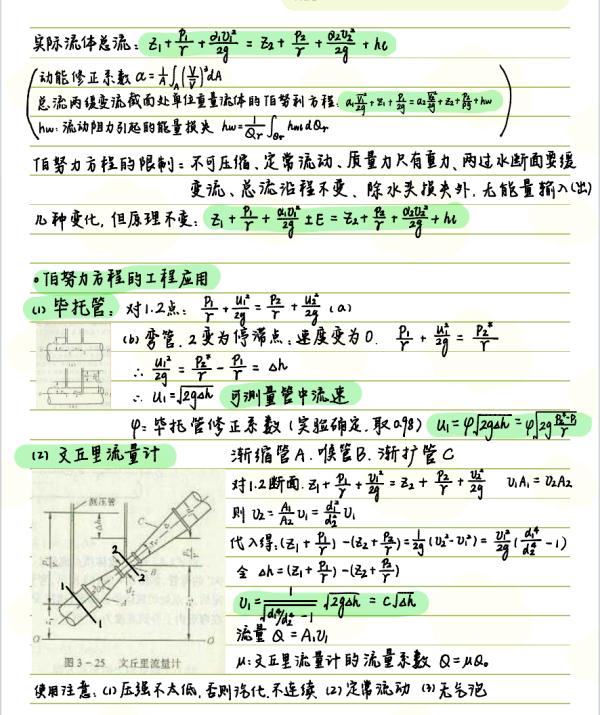 实际流体总流: z₁ + P₁/γ + α₁υ₁²/2g = z₂ + P₂/γ + α₂υ₂²/2g + hl
动能修正系数 α = 1/A ∫_A (V/V̄)³dA
总流两缓变流截面处单位重量流体的伯努利方程: α₁V̄₁²/2g + z₁ + P₁/ρg = α₂V̄₂²/2g + z₂ + P₂/ρg + hw
hw: 流动阻力引起的能量损失 hw = 1/Qγ ∫_Qγ hwi dQγ
伯努力方程的限制: 不可压缩、定常流动、质量力只有重力、两过水断面要缓
变流、总流沿程不变、除水头损失外,无能量输入(出)
几种变化,但原理不变: z₁ + P₁/γ + α₁υ₁²/2g ± E = z₂ + P₂/γ + α₂υ₂²/2g + hl
伯努力方程的工程应用
(1) 毕托管: 对1.2点: P₁/γ + u₁²/2g = P₂/γ + u₂²/2g (a)
(b) 弯管, 2变为停滞点: 速度变为0. P₁/γ + u₁²/2g = P₂*/γ
∴ u₁²/2g = P₂*/γ - P₁/γ = Δh
∴ u₁ = √2gΔh 可测量管中流速
φ: 毕托管修正系数 (实验确定, 取0.98) u₁ = φ√2gΔh = φ√2g(P₂*-P₁)/γ
(2) 文丘里流量计 渐缩管A. 喉管B. 渐扩管C
对1.2断面. z₁ + P₁/γ + υ₁²/2g = z₂ + P₂/γ + υ₂²/2g υ₁A₁ = υ₂A₂
则 υ₂ = A₁/A₂ υ₁ = d₁²/d₂² υ₁
代入得: (z₁ + P₁/γ) - (z₂ + P₂/γ) = 1/2g (υ₂² - υ₁²) = υ₁²/2g (d₁⁴/d₂⁴ - 1)
令 Δh = (z₁ + P₁/γ) - (z₂ + P₂/γ)
υ₁ = 1/√(d₁⁴/d₂⁴ - 1) √2gΔh = C√Δh
流量 Q = A₁υ₁
μ: 文丘里流量计的流量系数 Q = μQ₀
测压管
Δh
C
B
A
1
1
2
2
O
O
图 3-25 文丘里流量计
使用注意: (1) 压强不太低, 否则汽化, 不连续 (2) 定常流动 (3) 无气泡